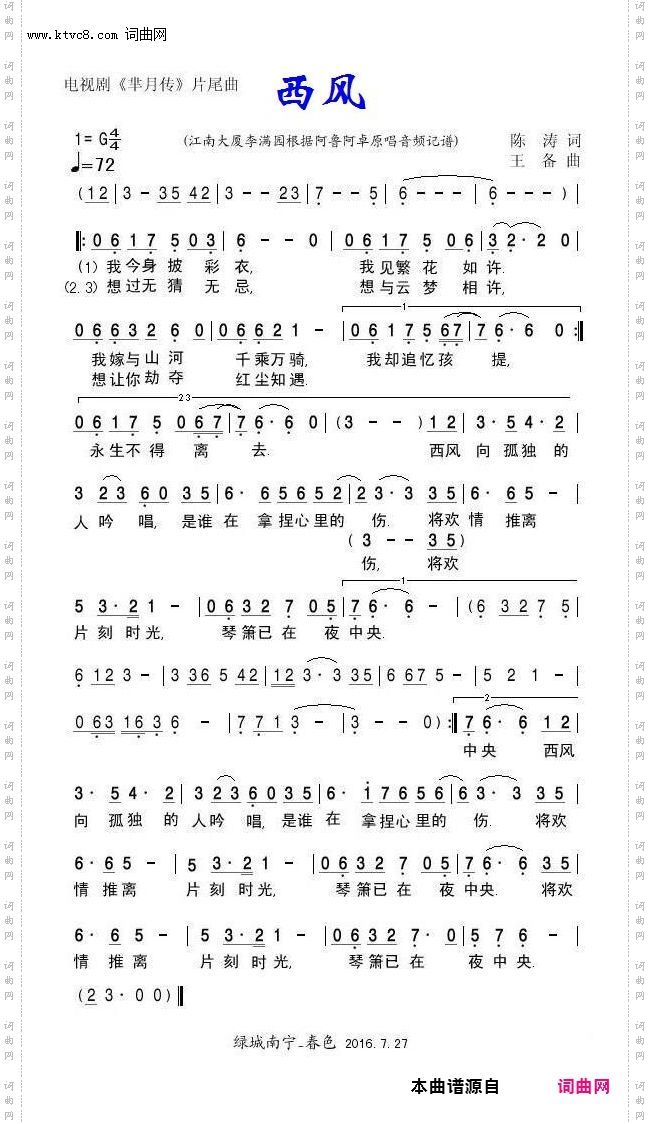 www.ktvc8.com 词曲网
电视剧《芈月传》片尾曲
西风
1=G 4/4
(江南大厦李满园根据阿鲁阿卓原唱音频记谱)
陈 涛 词
♩=72
王 备 曲
(12|3--35 42|3--23 12|7--5 7|6---|6---)|
‖:06 17 5 03|6--0|06 17 5 06|3 2·2 0|
(1) 我今身披 彩衣, 我见繁花 如许.
(2.3) 想过无猜 无忌, 想与云梦 相许,
1
06 63 2 6 0|06 62 1-|06 17 5 67|7 6·6 0:‖
我嫁与山河 千乘万骑, 我却追忆孩 提,
想让你劫夺 红尘知遇.
23
06 17 5 067|7 6·6 0|(3--)12|3·5 4·2|
永生不得 离 去. 西风 向孤独的
3 23 60 35|6·65652|23·3 35|6·65-|
人吟 唱, 是谁在拿捏心里的 伤. 将欢 情推离
(3--35)
伤, 将欢
1
5 3·21-|06 32 7 05|7 6·6-|(6 32 7 5|
片刻时光, 琴箫已在 夜中央.
6 12 3-|3 36 5 42|123·3 35|6 67 5-|5 2 1-|
063 163 6-|7 7 1 3-|3--0):‖
2
7 6·6 12|
中央 西风
3·5 4·2|323 6035|6·17656|63·3 35|
向孤独的 人吟 唱, 是谁在 拿捏心里的 伤. 将欢
6·65-|5 3·21-|06 32 7 05|7 6·6 35|
情推离 片刻时光, 琴箫已在 夜中央. 将欢
6·6 5-|5 3·21-|06 32 7·0|5 7 6-|
情推离 片刻时光, 琴箫已在 夜中央.
(2 3·0 0)‖
绿城南宁-春色 2016.7.27
本曲谱源自 词曲网